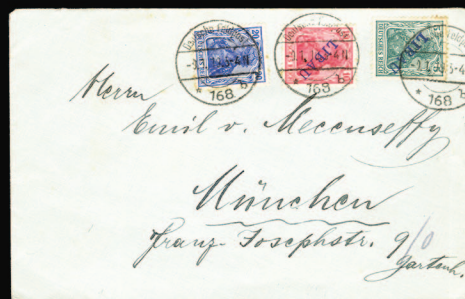 168 b
168 b
168 b
LIBAU
LIBAU
Herrn
Emil v. Mecenseffy
München
Franz-Josephstr. 9/0
Gartenh.